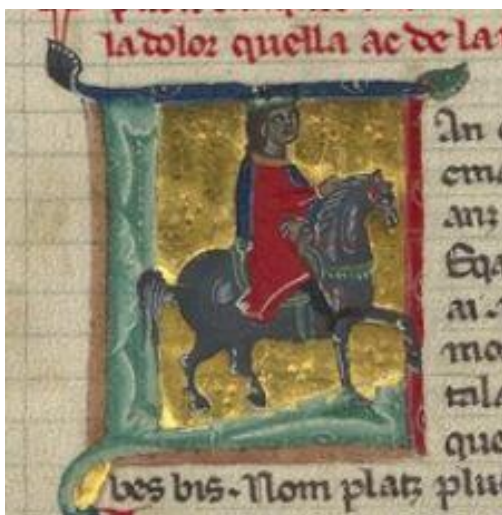 la dolor quella ac de la
An
ema
anz
Eqa
ai.
mo
tala
que
bes bis. Nom platz plu